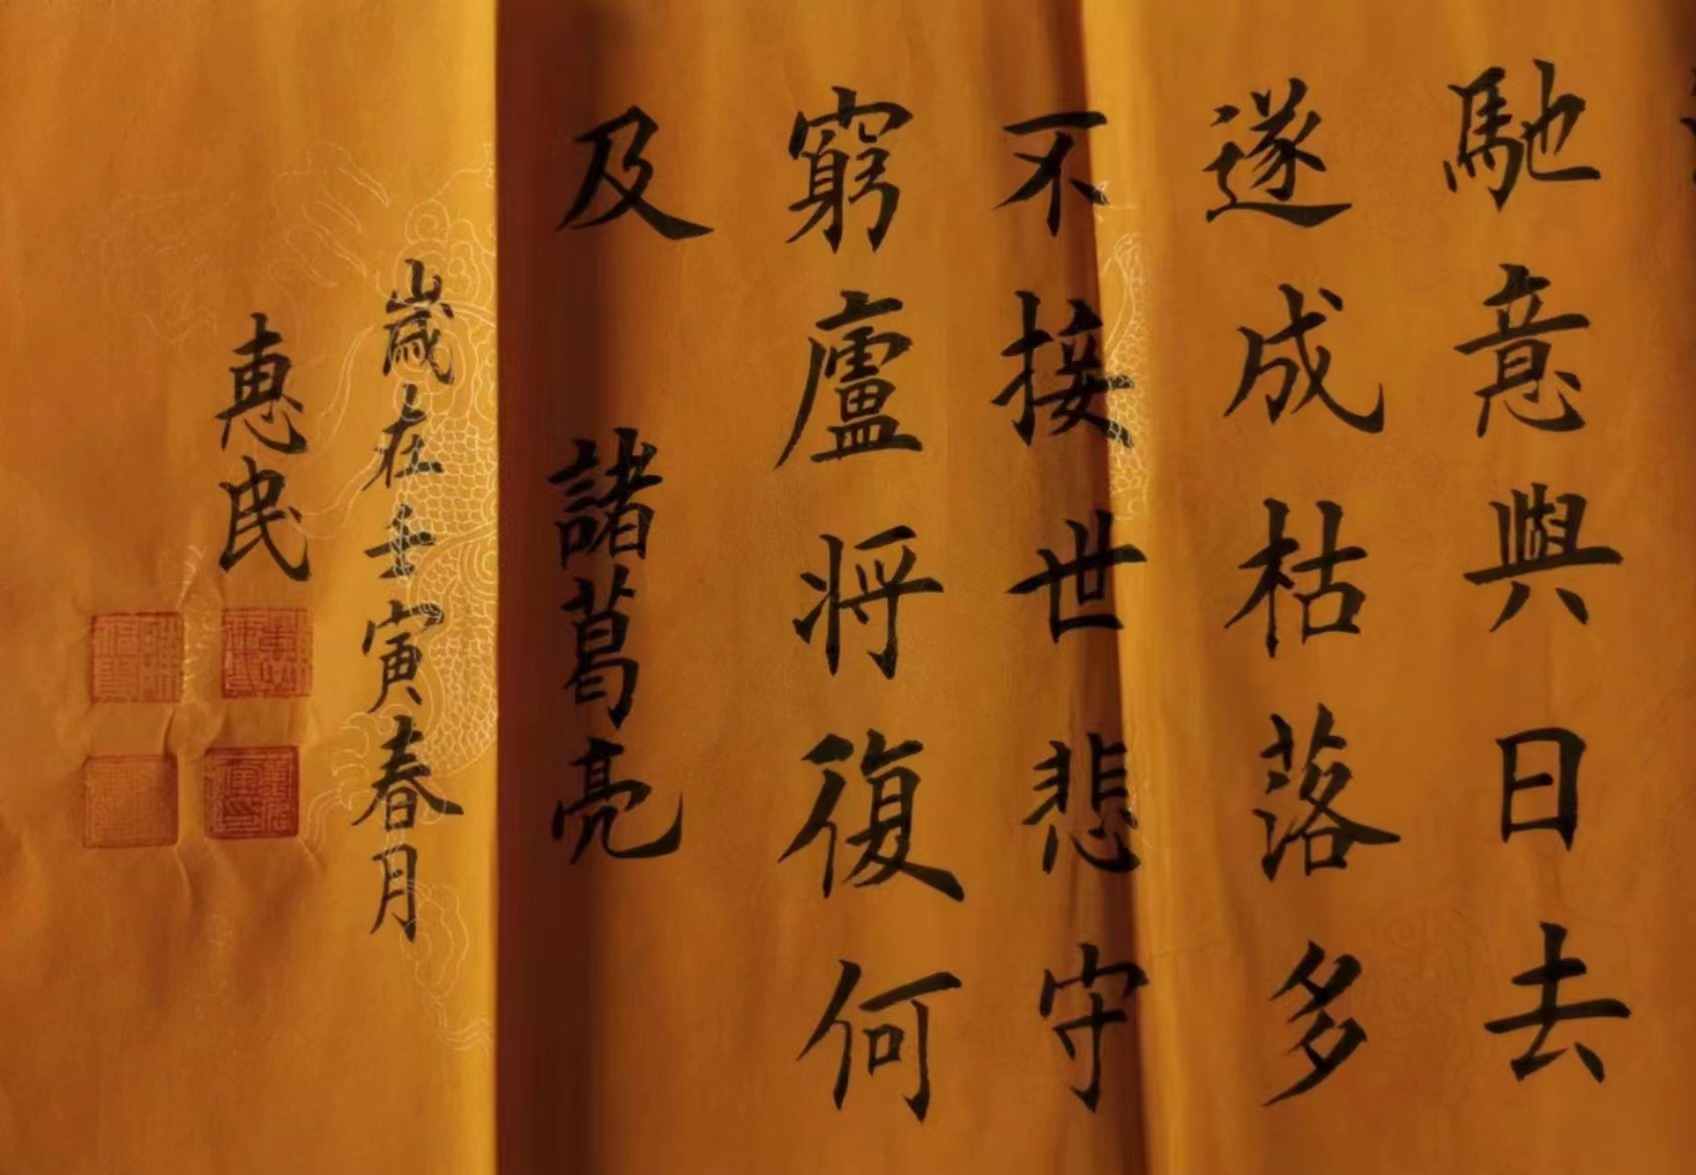 馳意與日去
遂成枯落多
不接世悲守
窮廬将復何
及 諸葛亮
歲在壬寅春月
惠民